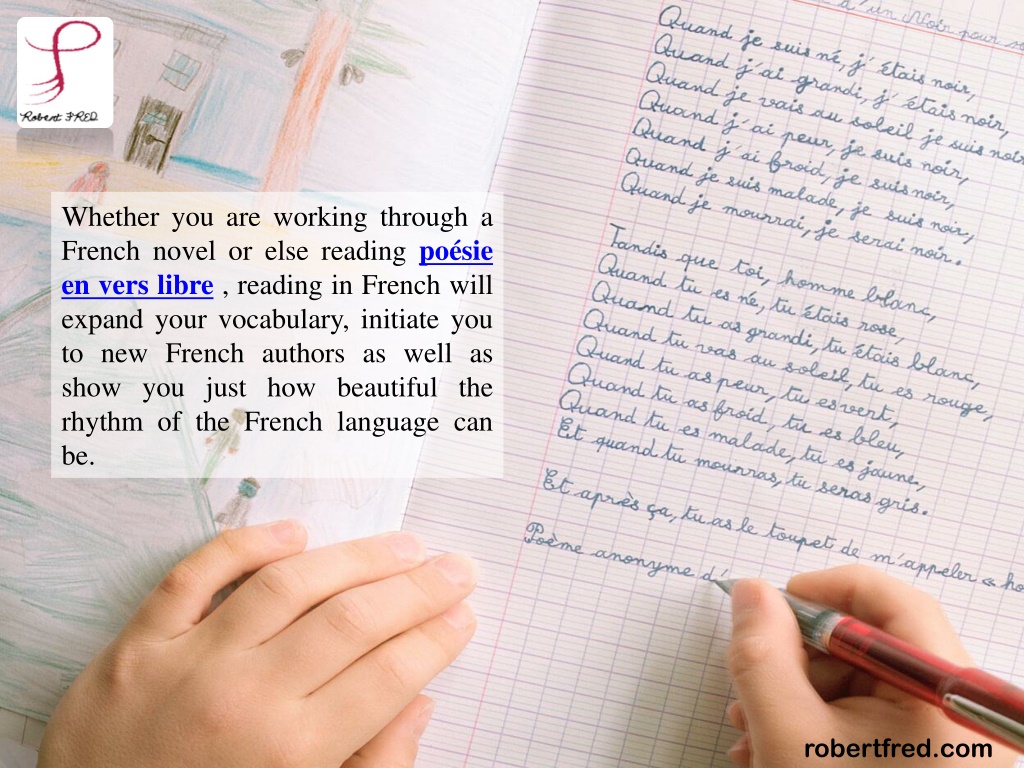 Robert FRED
Whether you are working through a
French novel or else reading poésie
en vers libre , reading in French will
expand your vocabulary, initiate you
to new French authors as well as
show you just how beautiful the
rhythm of the French language can
be.
d'un Noir pour
Quand je suis né, j'étais noir,
Quand j'ai grandi, j'étais noir,
Quand je vais au soleil je suis noir
Quand j'ai peur, je suis noir,
Quand j'ai froid, je suis noir,
Quand je suis malade, je suis noir,
Quand je mourrai, je serai noir.
Tandis que toi, homme blanc,
Quand tu es né, tu étais rose,
Quand tu as grandi, tu étais blanc,
Quand tu vas au soleil, tu es rouge,
Quand tu as peur, tu es vert,
Quand tu as froid, tu es bleu,
Quand tu es malade, tu es jaune,
Et quand tu mourras, tu seras gris.
Et après ça, tu as le toupet de m'appeler « ho
Poème anonyme d'
robertfred.com